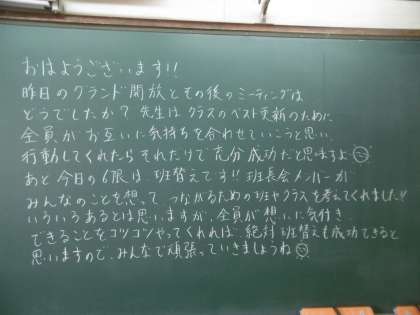 おはようございます!!
昨日のグランド開放とその後のミーティングは
どうでしたか？先生はクラスのベスト更新のために
全員がお互いに気持ちを合わせていこうと思い、
行動してくれたらそれだけで充分成功だと思いますよ
あと今日の6限は、班替えです!!班長会メンバーが
みんなのことを想って つながるための班やクラスを考えてくれました!!
いろいろあるとは思いますが、全員が想いに気付き
できることをコツコツやってくれれば、絶対班替えも成功できると
思いますので、みんなで頑張っていきましょうね